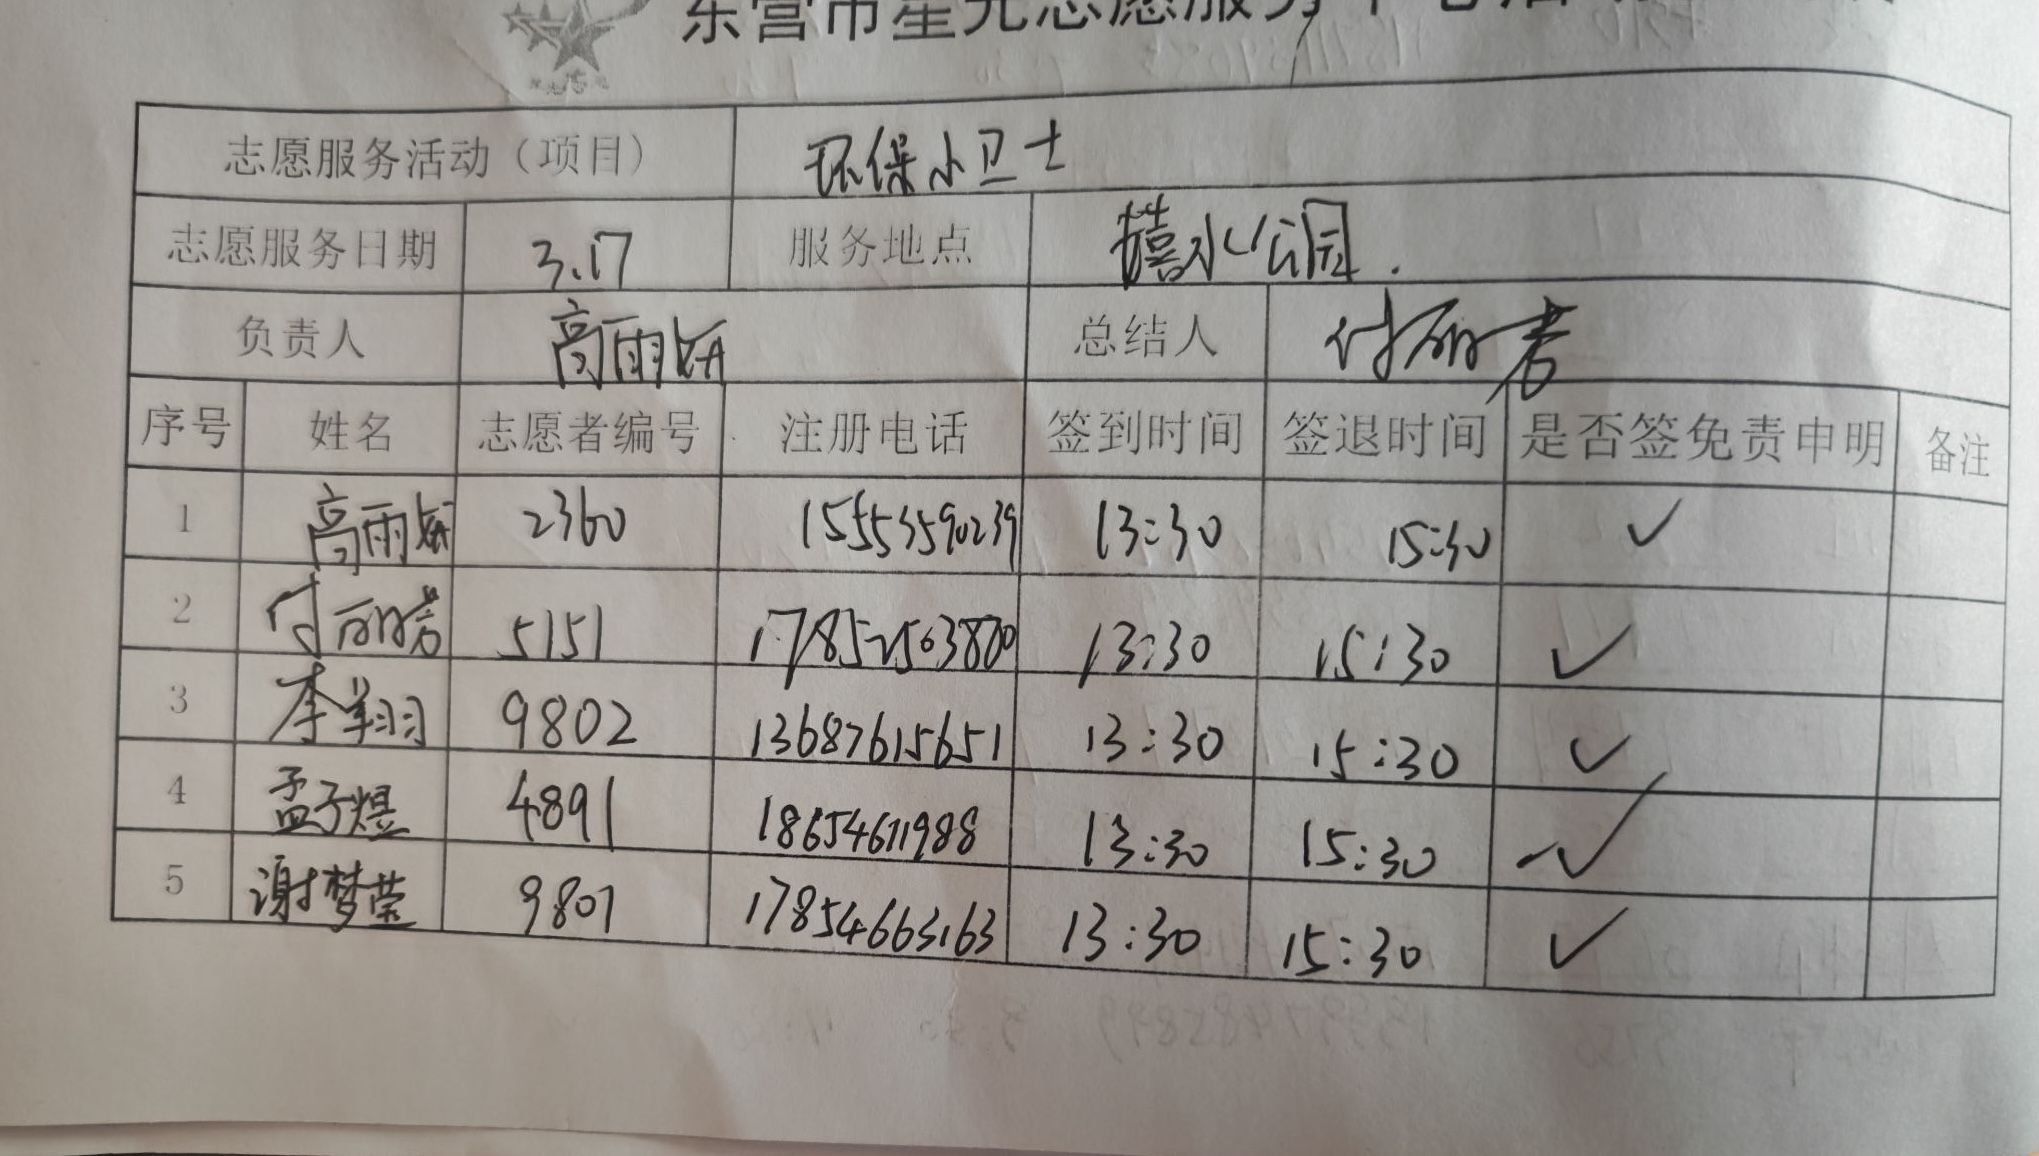 东营市星光志愿服务中心活动
志愿服务活动（项目） 环保小卫士
志愿服务日期 3.17 服务地点 公园.
负责人 高雨妍 总结人
序号 姓名 志愿者编号 注册电话 签到时间 签退时间 是否签免责申明 备注
1 高雨妍 2360 15553590239 13:30 15:30 ✓
2 5151 13:30 15:30 ✓
3 李翔羽 9802 13687615651 13:30 15:30 ✓
4 孟子煜 4891 18654611988 13:30 15:30 ✓
5 谢梦莹 9807 17854663163 13:30 15:30 ✓